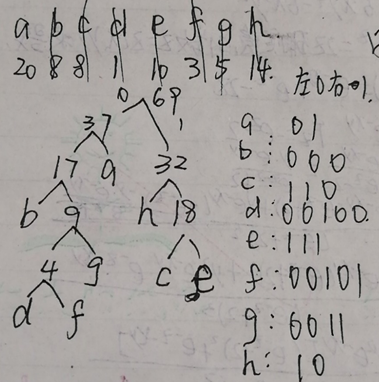 a b c d e f g h
20 8 8 1 10 3 5 14
左0右→1
0 69
37 1
17 a 32
b 9 h 18
4 g c e
d f
a: 01
b: 000
c: 110
d: 00100
e: 111
f: 00101
g: 0011
h: 10